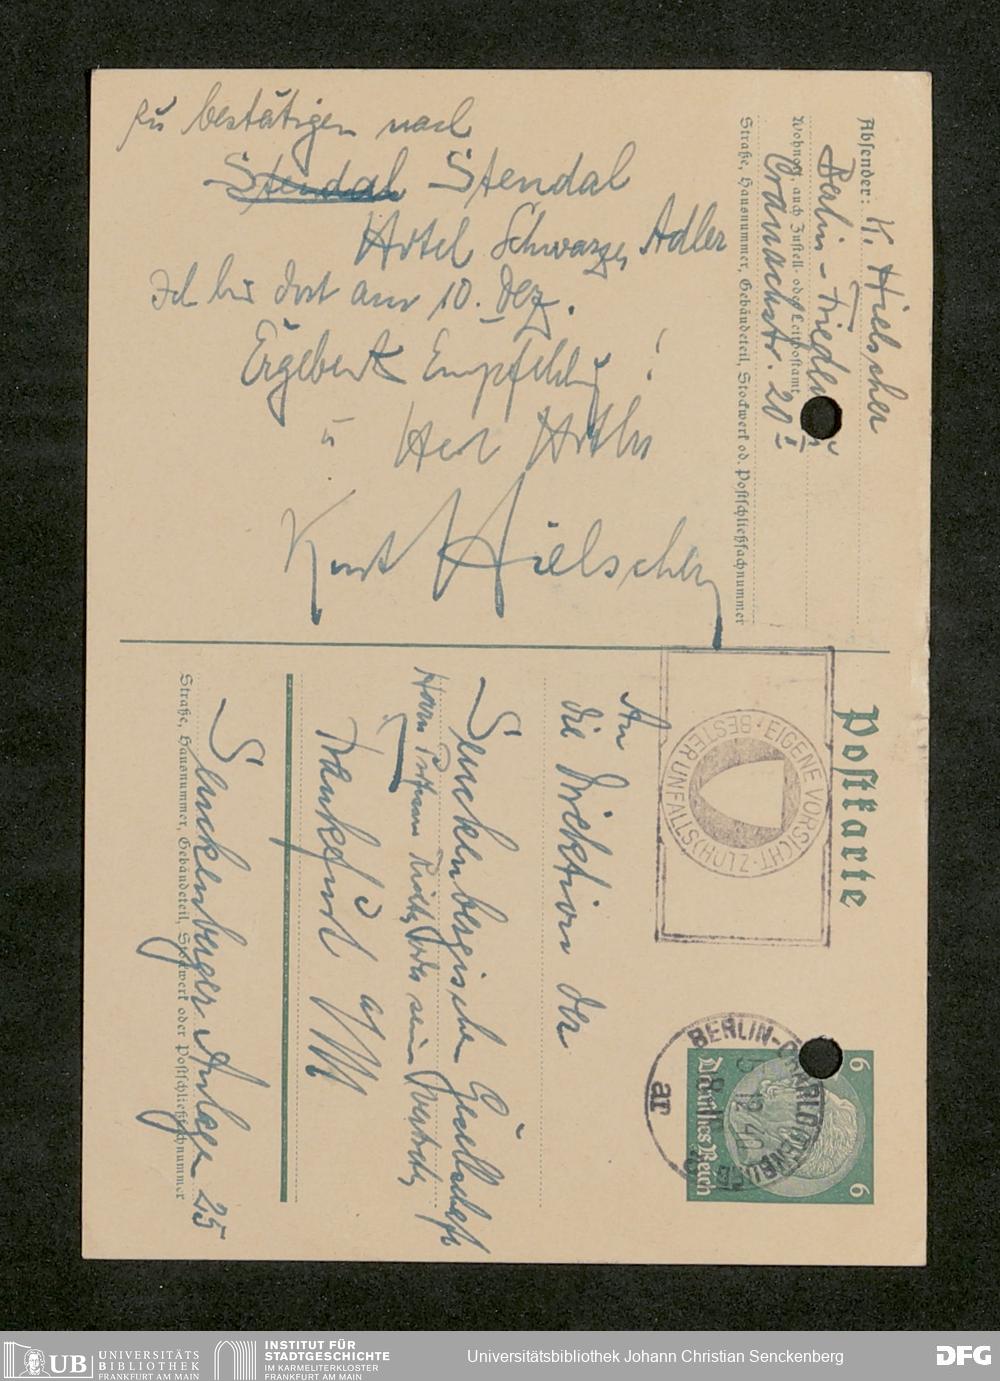 zu bestätigen nach
Stendal Stendal
Hotel Schwarzer Adler
Ich bin dort am 10. Dez.
Ergebenste Empfehlung!
u Heil Hitler
Kurt Hielscher
Absender: K. Hielscher
Berlin-Frieden
Wohnort, auch Zustell- oder Leitpostamt
Cranachstr. 20 II
Straße, Hausnummer, Gebäudeteil, Stockwerk od. Postschließfachnummer
Postkarte
EIGENE VORSICHT · BESTER UNFALLSCHUTZ
BERLIN-CHARLOTTENBURG
12.40
ar
6 6
Deutsches Reich
An
die Direktion der
Senckenbergischen Gesellschaft
Herrn Professor Richter oder sein Vertreter
Frankfurt a/M
Senckenberger Anlage 25
Straße, Hausnummer, Gebäudeteil, Stockwerk oder Postschließfachnummer
UB UNIVERSITÄTS
BIBLIOTHEK
FRANKFURT AM MAIN
INSTITUT FÜR
STADTGESCHICHTE
IM KARMELITERKLOSTER
FRANKFURT AM MAIN
Universitätsbibliothek Johann Christian Senckenberg
DFG